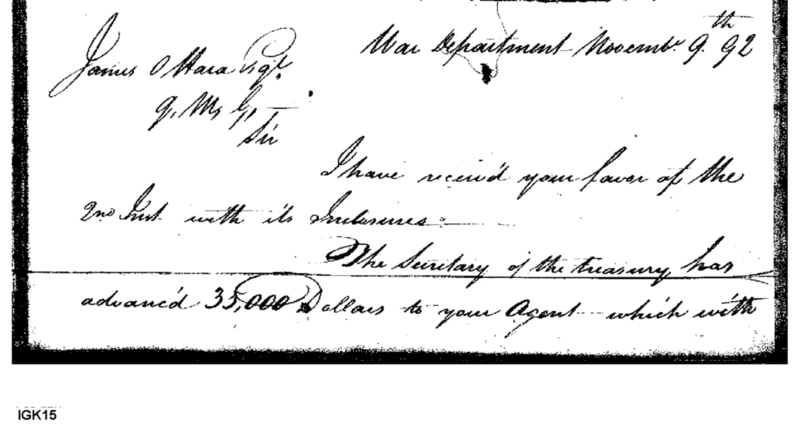 War Department Novembr. 9th 92
James O Hara Esqr.
Q. M. G.
Sir
I have receiv'd your favor of the
2nd Inst with its Inclosures.
The Secretary of the treasury has
advanc'd 35,000 Dollars to your Agent which with
IGK15